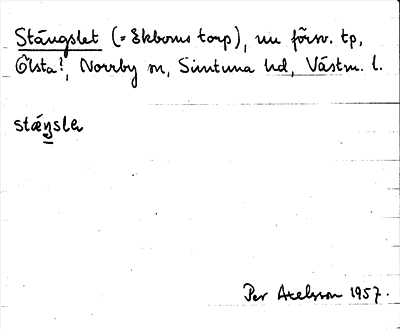 Stängslet (= Ekboms torp), nu försv. tp,
Ölsta!, Norrby sn, Simtuna hd, Västm. l.
stæŋsle
Per Axelsson 1957.